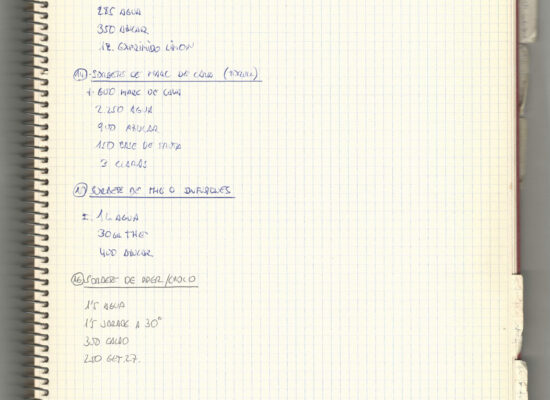 285 AGUA
350 AZUCAR
EXPRIMIDO LIMON
14 - SORBETE DE MARC DE CAVA
1.600 MARC DE CAVA
2.250 AGUA
900 AZUCAR
150 BASE DE FRUTA
3 CLARAS
15 SORBETE DE THE O INFUSIONES
1 L AGUA
30 GR THE
400 AZUCAR
16 SORBETE DE /CHOCO
1'5 AGUA
1'5 JARABE A 30º
350 CACAO
250 GET.27.